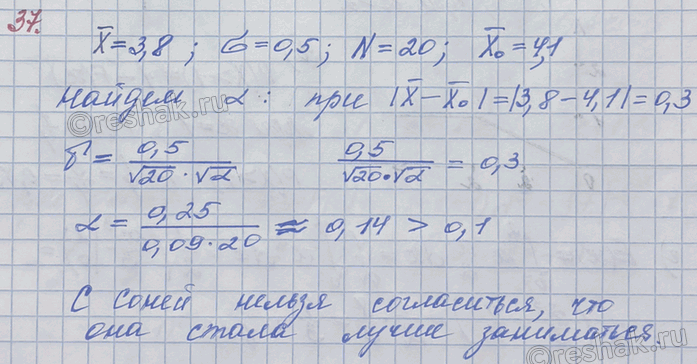 37.
X̄ = 3,8 ; σ = 0,5 ; N = 20 ; X̄₀ = 4,1
найдем α : при |X̄ - X̄₀| = |3,8 - 4,1| = 0,3
δ = 0,5 / (√20 · √α)    0,5 / (√20 · √α) = 0,3
α = 0,25 / (0,09 · 20) ≈ 0,14 > 0,1
С Соней нельзя согласиться, что
она стала лучше заниматься.
©reshak.ru
©reshak.ru